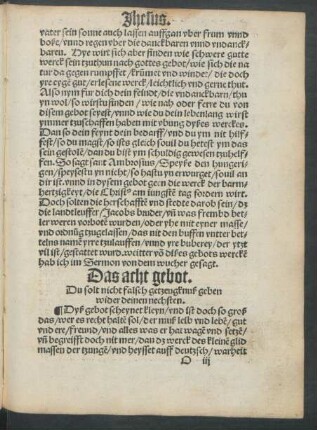 Jhesus.
vater sein sonne auch lassen auffgan vber frum vnnd
boße/ vnnd regen vber die danckbaren vnnd vndanck/
baren. Dye wirt sich aber finden wie schwere gutte
werck sein tzuthun nach gottes gebot/ wie sich die na
tur da gegen rumpffet/ krümet vnd windet/ die doch
yre eygē gut/ erlesene werck/ leichtlich vnd gerne thut.
Also nym fur dich dein feinde/ die vndanckbarn/ thu
yn wol/ so wirstu finden/ wie nah oder ferne du von
disem gebot seyest/ vnnd wie du dein lebenlang wirst
ymmer tzuschaffen haben mit vbung dyßes werckes.
Dan so dein feynt dein bedarff/ vnd du ym nit hilf/
fest/ so du magst/ so ists gleich souil du hetest ym das
sein gestolē/ dan du bist ym schuldig gewesen tzuhelf/
fen. So sagt sant Ambrosius/ Speyße den hungeri-
gen/ speysestu yn nicht/ so hastu yn erwurget/ souil an
dir ist. vnnd in dysem gebot geen die werck der barm/
hertzigkeyt/ die Christus am iungstē tag fordern wirt.
Doch solten die herschafftē vnd stedte darob sein/ dz
die landtleuffer/ Jacobs bruder/ vñ was fremd bet-
ler weren vorbotē wurden/ oder yhe mit eyner masse/
vnd ordnūg tzugelassen/ das nit den buffen vnter bet-
telns namē yrre tzulauffen/ vnnd yre buberey/ der ytzt
vil ist/ gestattet wurd. weitter vō dißes gebots werckē
hab ich im Sermon von dem wucher gesagt.
Das acht gebot.
Du solt nicht falsch getzeugknuß geben
wider deinen nechsten.
¶ Dyß gebot scheynet kleyn/ vnd ist doch so groß
das/ wer es recht haltē sol/ der muß leib vnd lebē/ gut
vnd ere/ freund/ vnd alles was er hat wagē vnd setzē/
vñ begreifft doch nit mer/ dan dz werck des kleinē glid
massen der tzungē/ vnd heysset auff deutzsch/ warheit
O iij